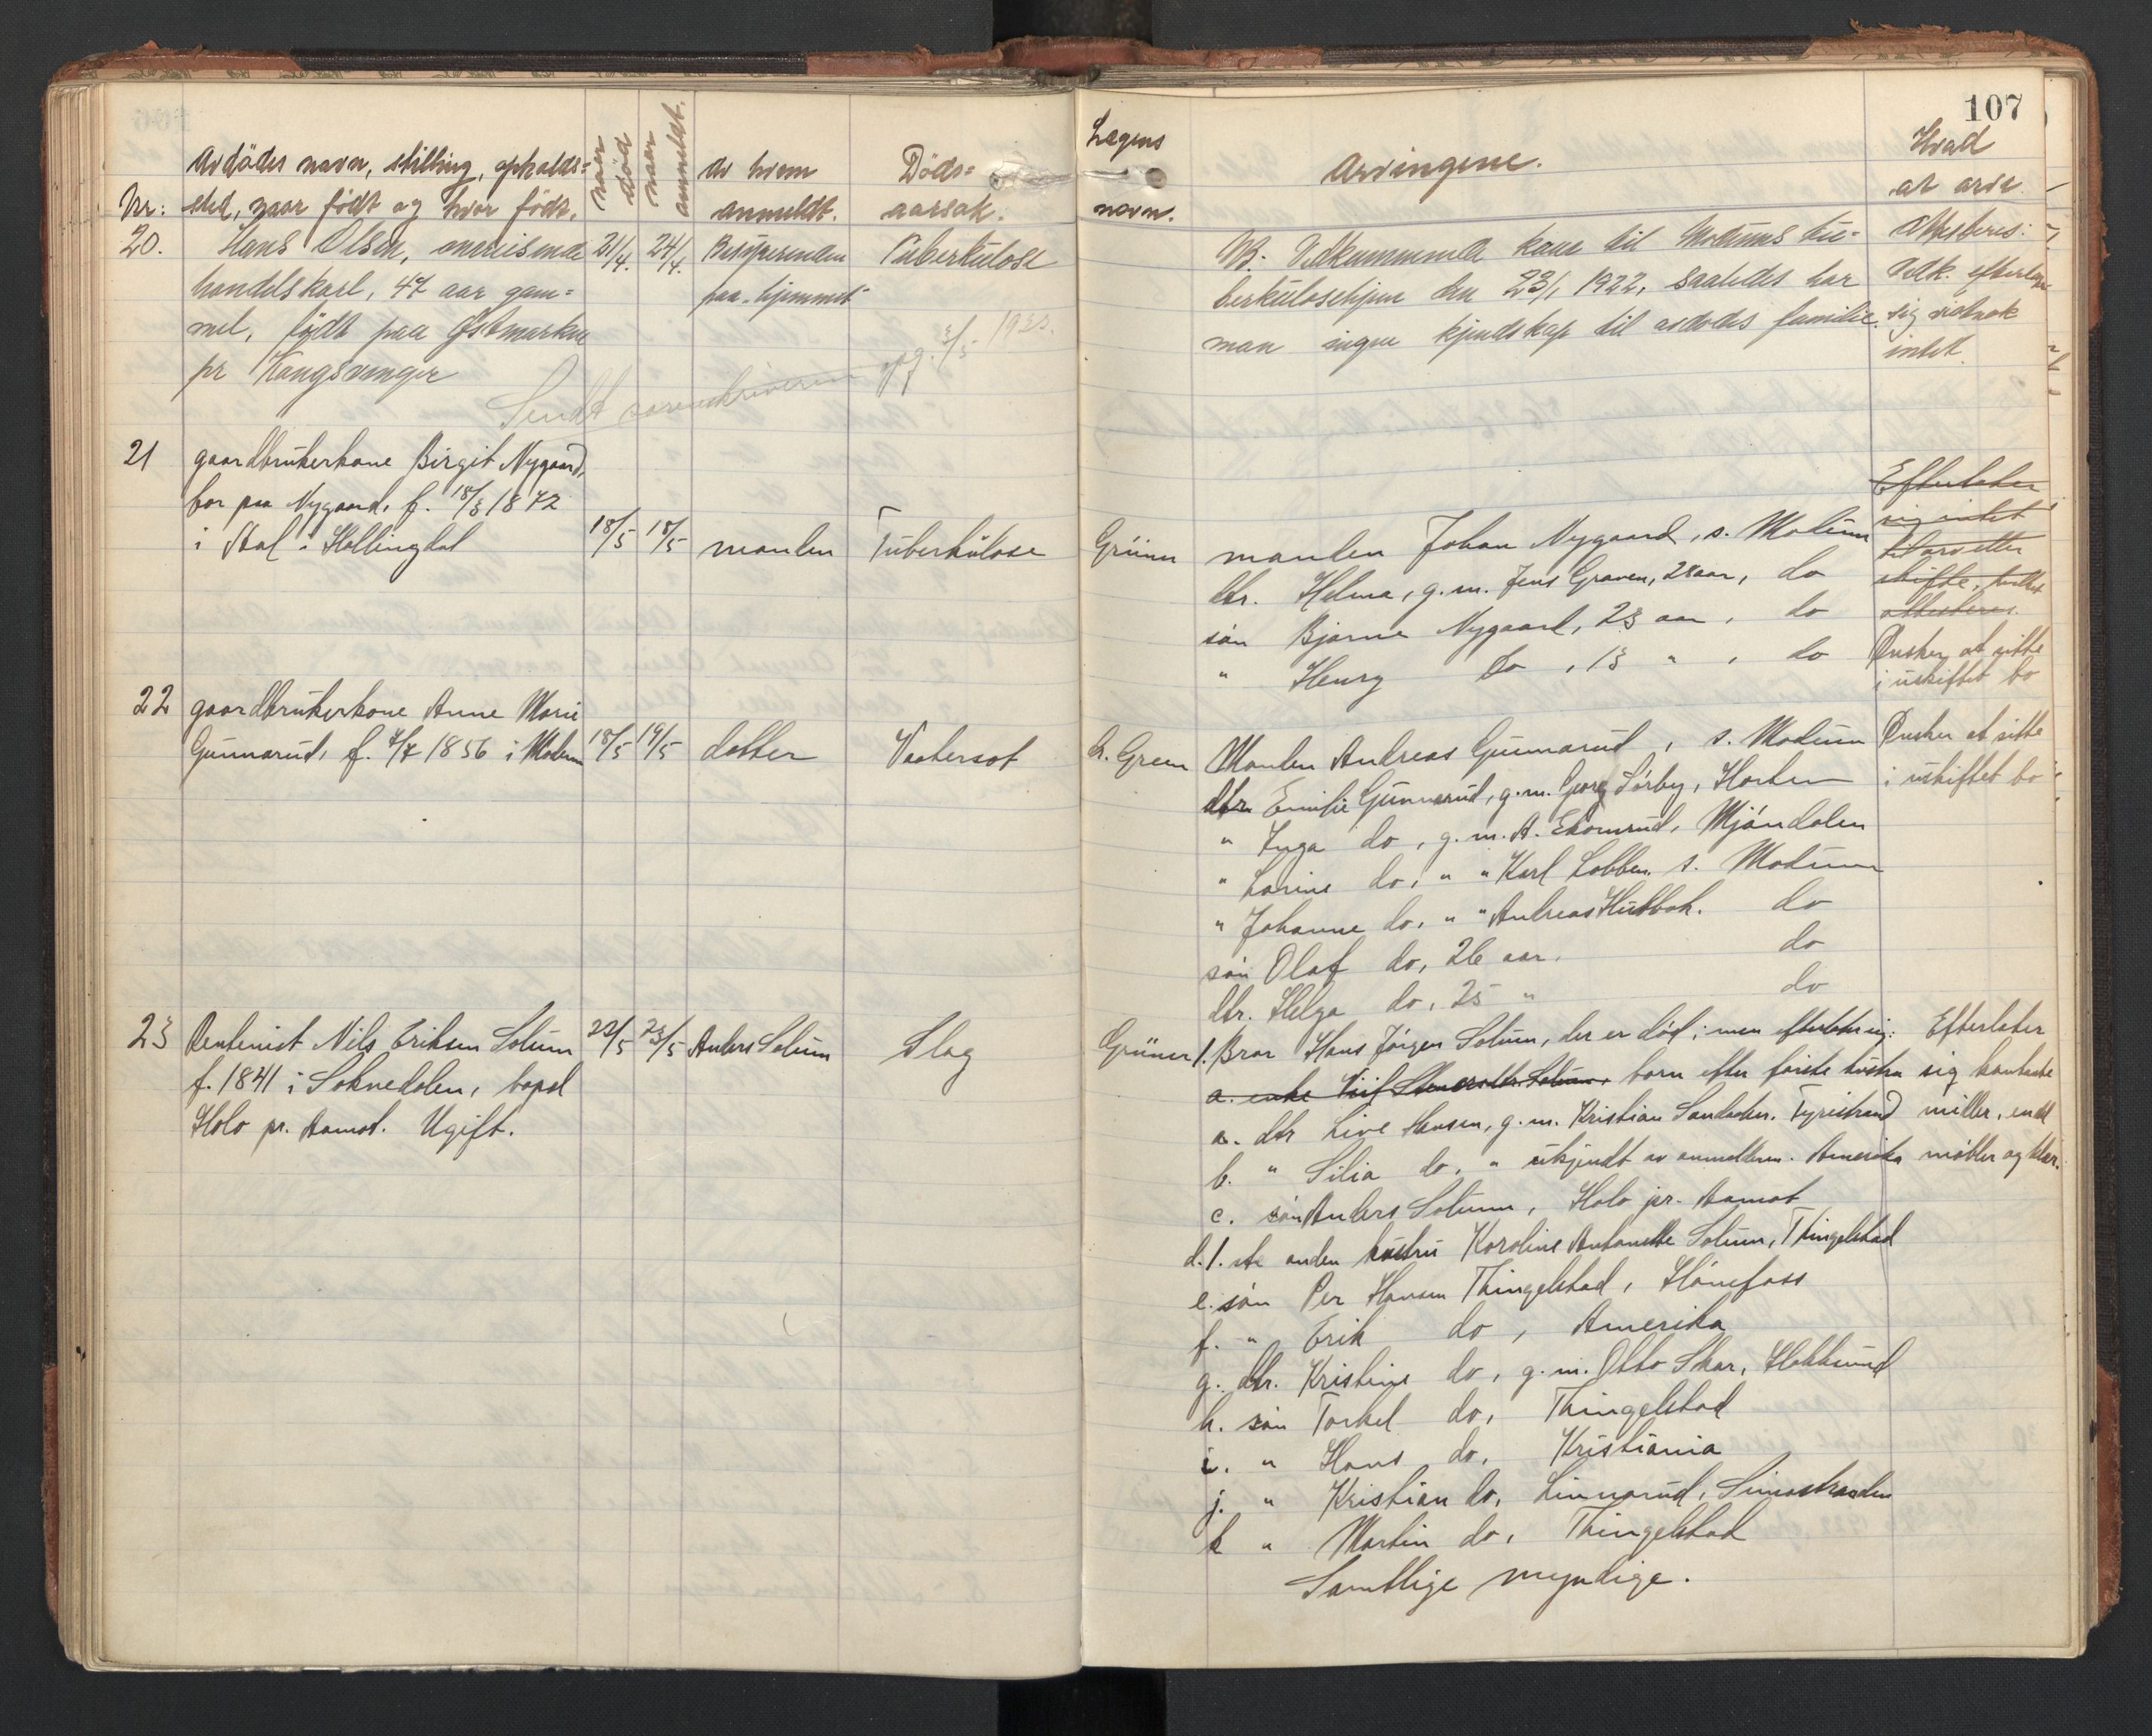 107
Nr:
Avdødes navn, stilling, opholds=
sted, naar født og hvor født.
naar død
naar anmeldt.
Av hvem
anmeldt.
Døds=
aarsak.
Lægens
navn.
Arvingene.
Hvad
at arve
20.
Hans Olsen, omreisende
handelskarl, 47 aar gam=
mel, født paa Østmarken
pr Kongsvinger
21/4.
24/4.
Bestyrerinden
paa hjemmet
Tuberkulose
NB. Vedkommende kom til Modums tu=
berkulosehjem den 23/1 1922, saaledes har
man ingen kjendskap til avdødes familie.
Attesteres:
Vedk. efterlot
sig vistnok
intet.
Sendt sorenskriveren
21
gaardbrukerkone Birgit Nygaard,
bor paa Nygaard, f. 18/3 1872
i Aal i Hallingdal
18/5
18/5
manden
Tuberkulose
Grüner
manden Johan Nygaard, s. Modum
dtr. Helma, g.m. Jens Graven, 28 aar, do
søn Bjarne Nygaard, 23 aar, do
" Henry do, 13 " , do
Efterlater
sig intet
til arv etter
skifte, hvilket
attesteres.
Ønsker at sitte
i uskiftet bo
22
gaardbrukerkone Anne Marie
Gunnarud, f. 7/7 1856 i Modum
18/5
19/5
datter
Vattersot
A. Green
Manden Andreas Gunnarud, s. Modum
dtr Emilie Gunnarud, g.m. Georg Sørby, Horten
" Inga do, g.m. A. Ekornrud, Mjøndalen
" Larine do, " " Karl Lobben, s. Modum
" Johanne do, " " Andreas Hulbak. do
søn Olaf do, 26 aar. do
dtr. Helga do, 25 " do
Ønsker at sitte
i uskiftet bo
23
Rentenist Nils Eriksen Solum
f. 1841 i Soknedalen, bopæl
Holo pr. Aamot. Ugift.
22/5
23/5
Anders Solum
Slag
Grüner
1. Bror Hans Jørgen Solum, der er død; men efterlater sig:
a. enke børn efter første hustru
a. dtr Live Hansen, g.m. Kristian Sandaker, Tyristrand
b. " Silia do, " ukjendt av anmelderen. Amerika
c. søn Anders Solum, Holo pr. Aamot
d. 1. ste anden hustru Karoline Antonette Solum, Thingelstad
e. søn Per Hansen Thingelstad, Hønefoss
f. " Erik do, Amerika
g. dtr. Kristine do, g.m. Otto Skar, Hokksund
h. søn Torkel do, Thingelstad
i. " Hans do, Kristiania
j. " Kristian do, Linnerud, Simostranden
k " Martin do, Thingelstad
Samtlige myndige.
Efterlater
sig kontante
midler, endel
møbler og klær.